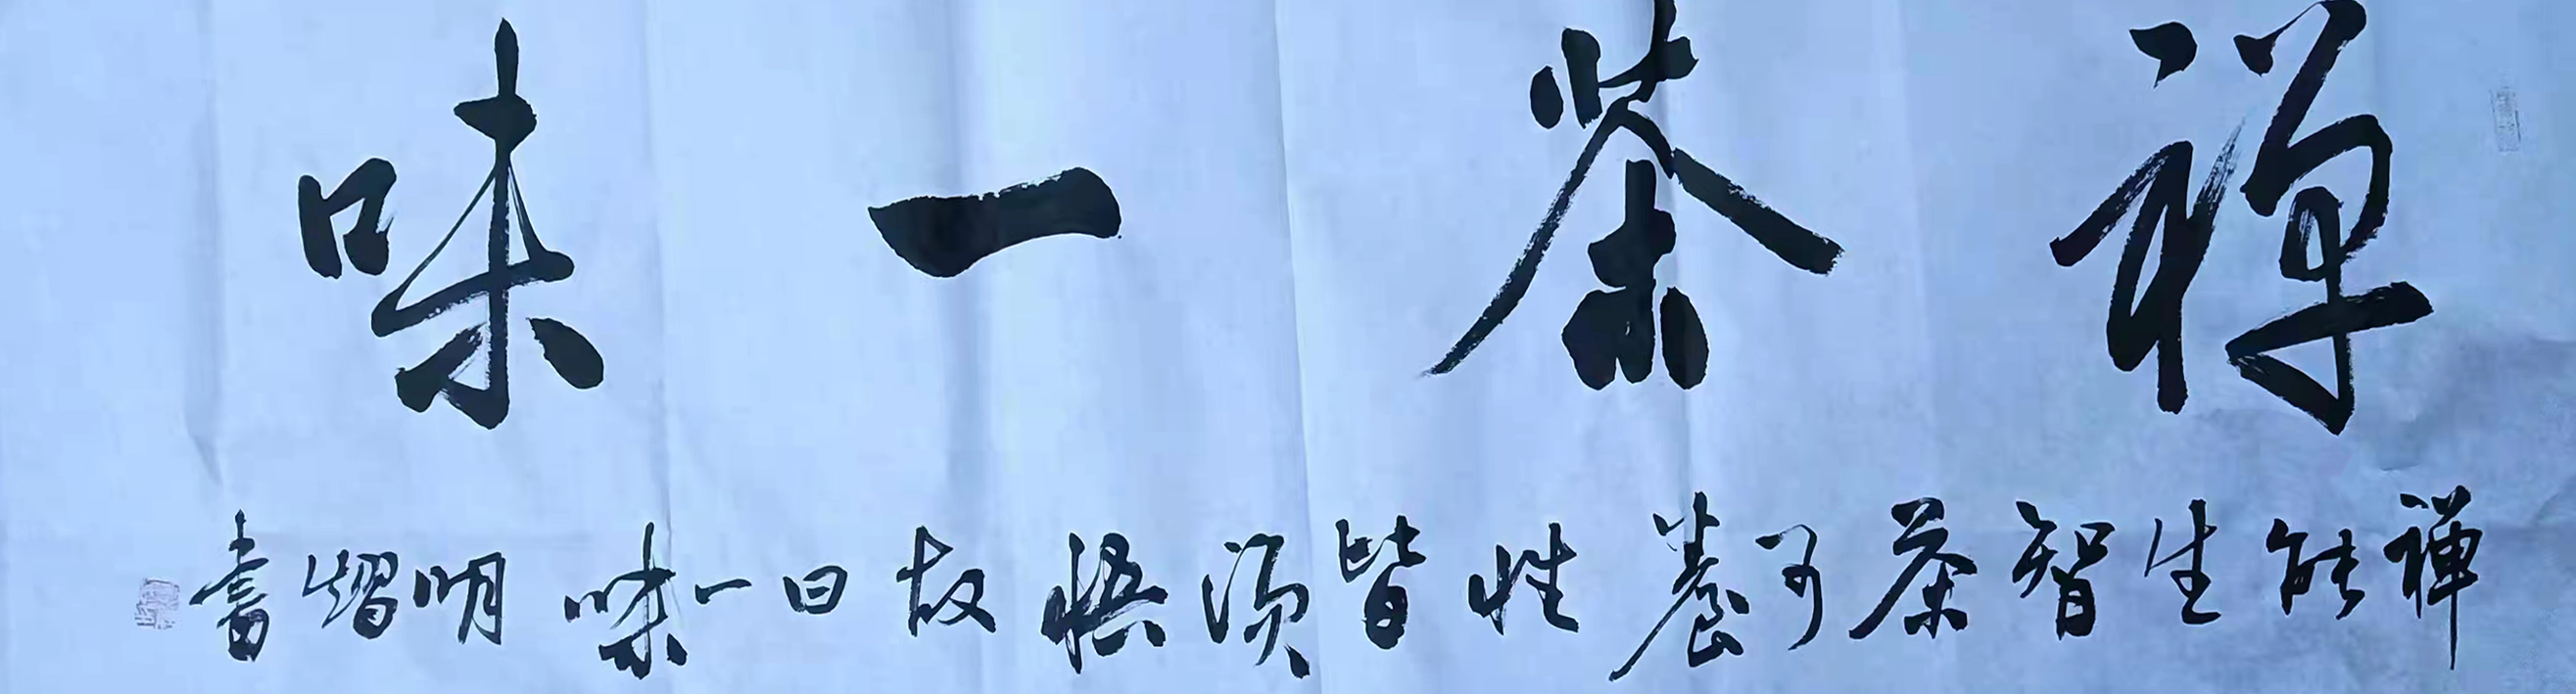 禪茶一味
禅能生智茶可養性皆須悟故曰一味明熠書